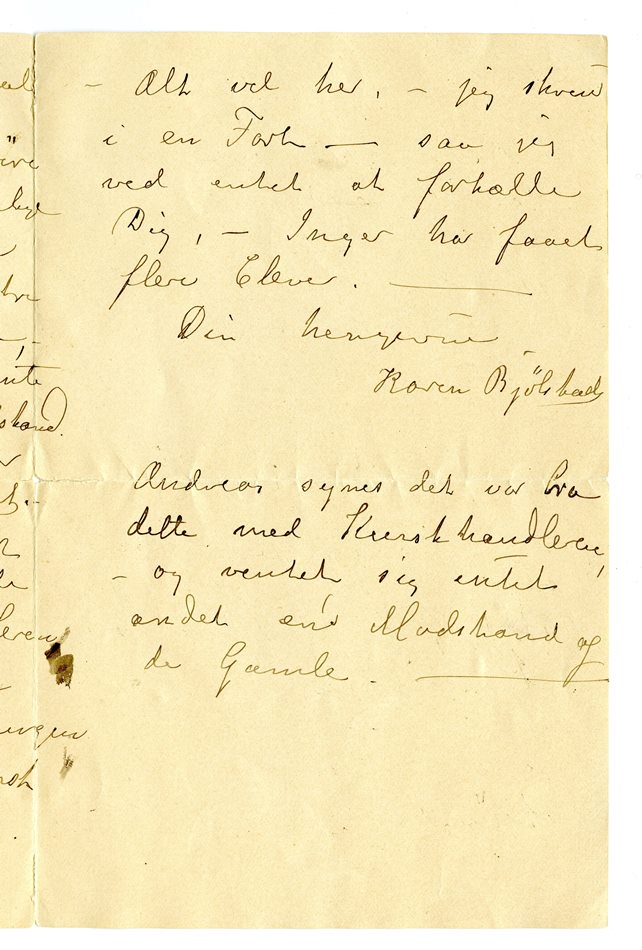 – Alt vel her, – jeg skriver
i en Fart — saa jeg
ved entet at fortælle
Dig, – Inger har faaet
flere Elever. —
Din hengivne
Karen Bjølstad
Andreas synes det var bra
dette med Kunsthandleren,
– og ventet sig entet
andet en Modstand af
de Gamle. —